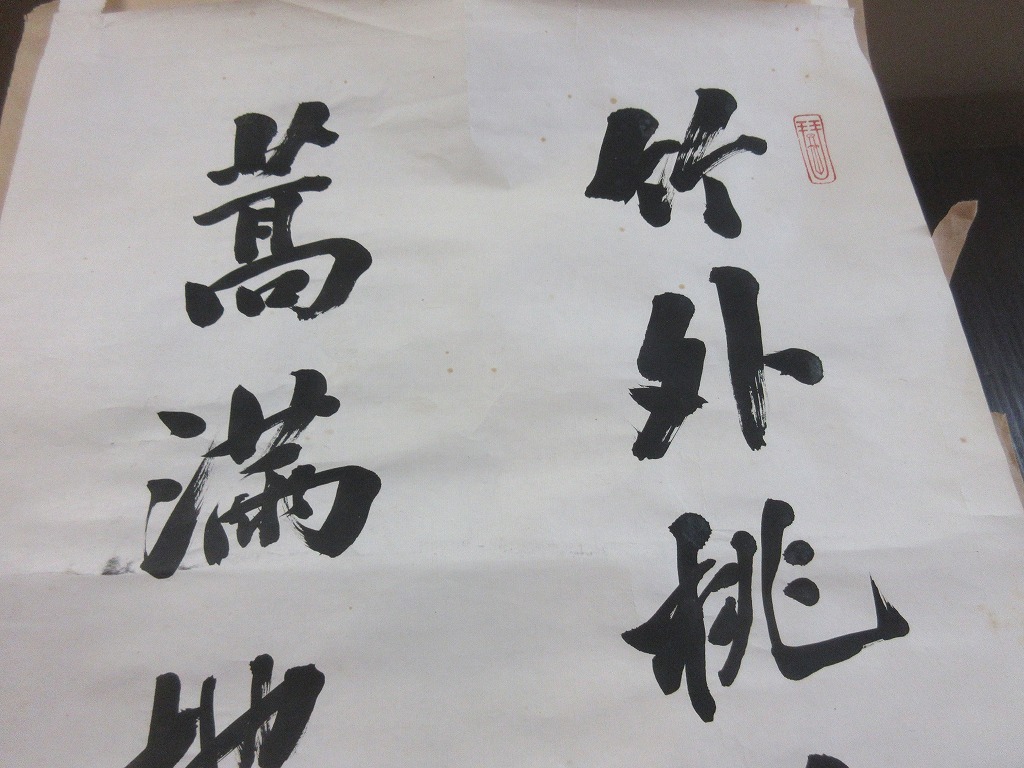 竹外桃
蒿滿地